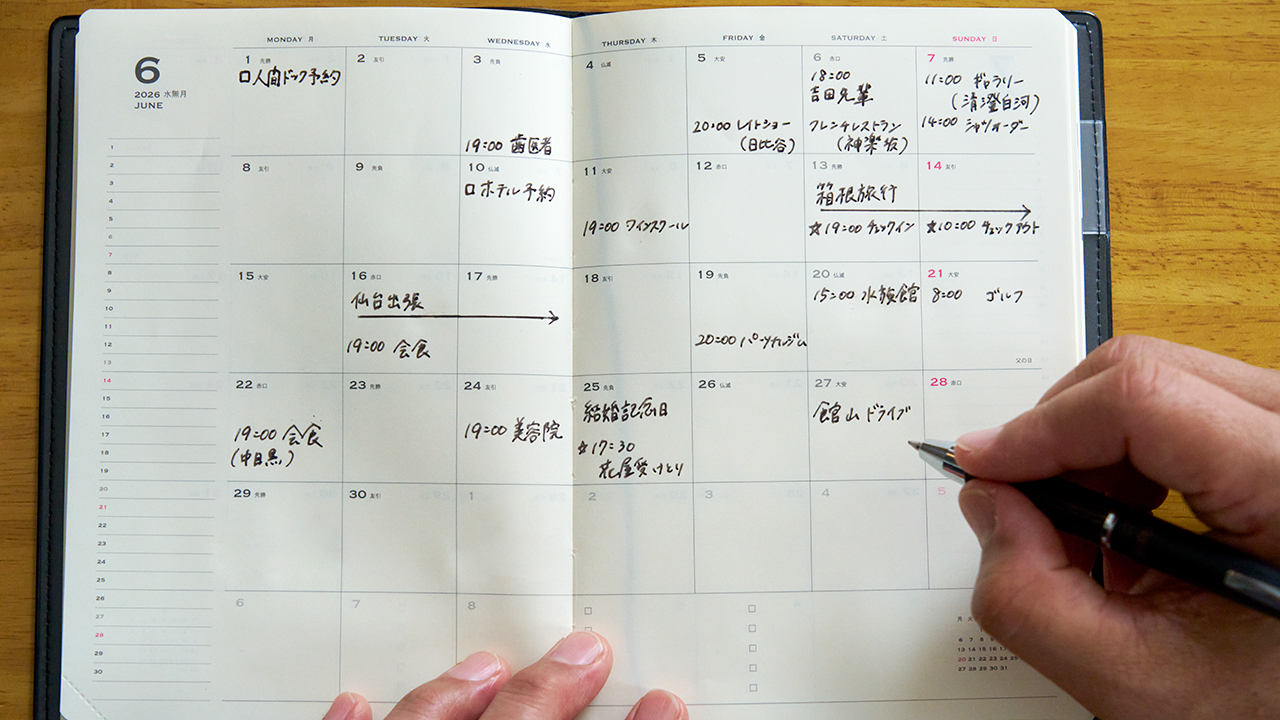 6
2026 水無月
JUNE
MONDAY 月
TUESDAY 火
WEDNESDAY 水
THURSDAY 木
FRIDAY 金
SATURDAY 土
SUNDAY 日
1 先勝
□人間ドック予約
2 友引
3 先負
19:00 歯医者
4 仏滅
5 大安
20:00 レイトショー
(日比谷)
6 赤口
18:00
吉田先輩
フレンチレストラン
(神楽坂)
7 先勝
11:00 ギャラリー
(清澄白河)
14:00 シャツオーダー
8 友引
9 先負
10 仏滅
□ホテル予約
11 大安
19:00 ワインスクール
12 赤口
13 先勝
箱根旅行
☆19:00 チェックイン
14 友引
☆10:00 チェックアウト
15 大安
16 赤口
仙台出張
19:00 会食
17 先勝
18 友引
19 先負
20:00 パーソナルジム
20 仏滅
15:00 水族館
21 大安
8:00 ゴルフ
父の日
22 赤口
19:00 会食
(中目黒)
23 先勝
24 友引
19:00 美容院
25 先負
結婚記念日
☆17:30
花屋受けとり
26 仏滅
27 大安
館山ドライブ
28 赤口
29 先勝
30 友引
1
2
3
4
5
6
7
8
1
2
3
4
5
6
7
8
9
10
11
12
13
14
15
16
17
18
19
20
21
22
23
24
25
26
27
28
29
30
月 火
6 7 8
13 14 15 16
20 21 22 23 24 25
27 28 29 30 31